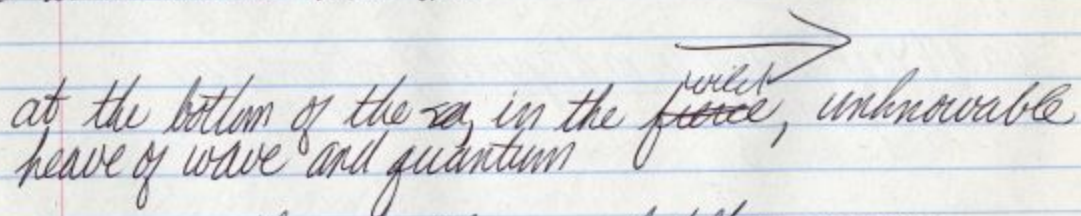 at the bottom of the sea, in the fierce wild, unknowable
heave of wave and quantum